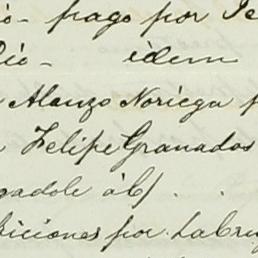 ió- pago por Te
Dió- idem
Alonzo Noriega p
Felipe Granados
gadole á b/ . .
biciones por Labru